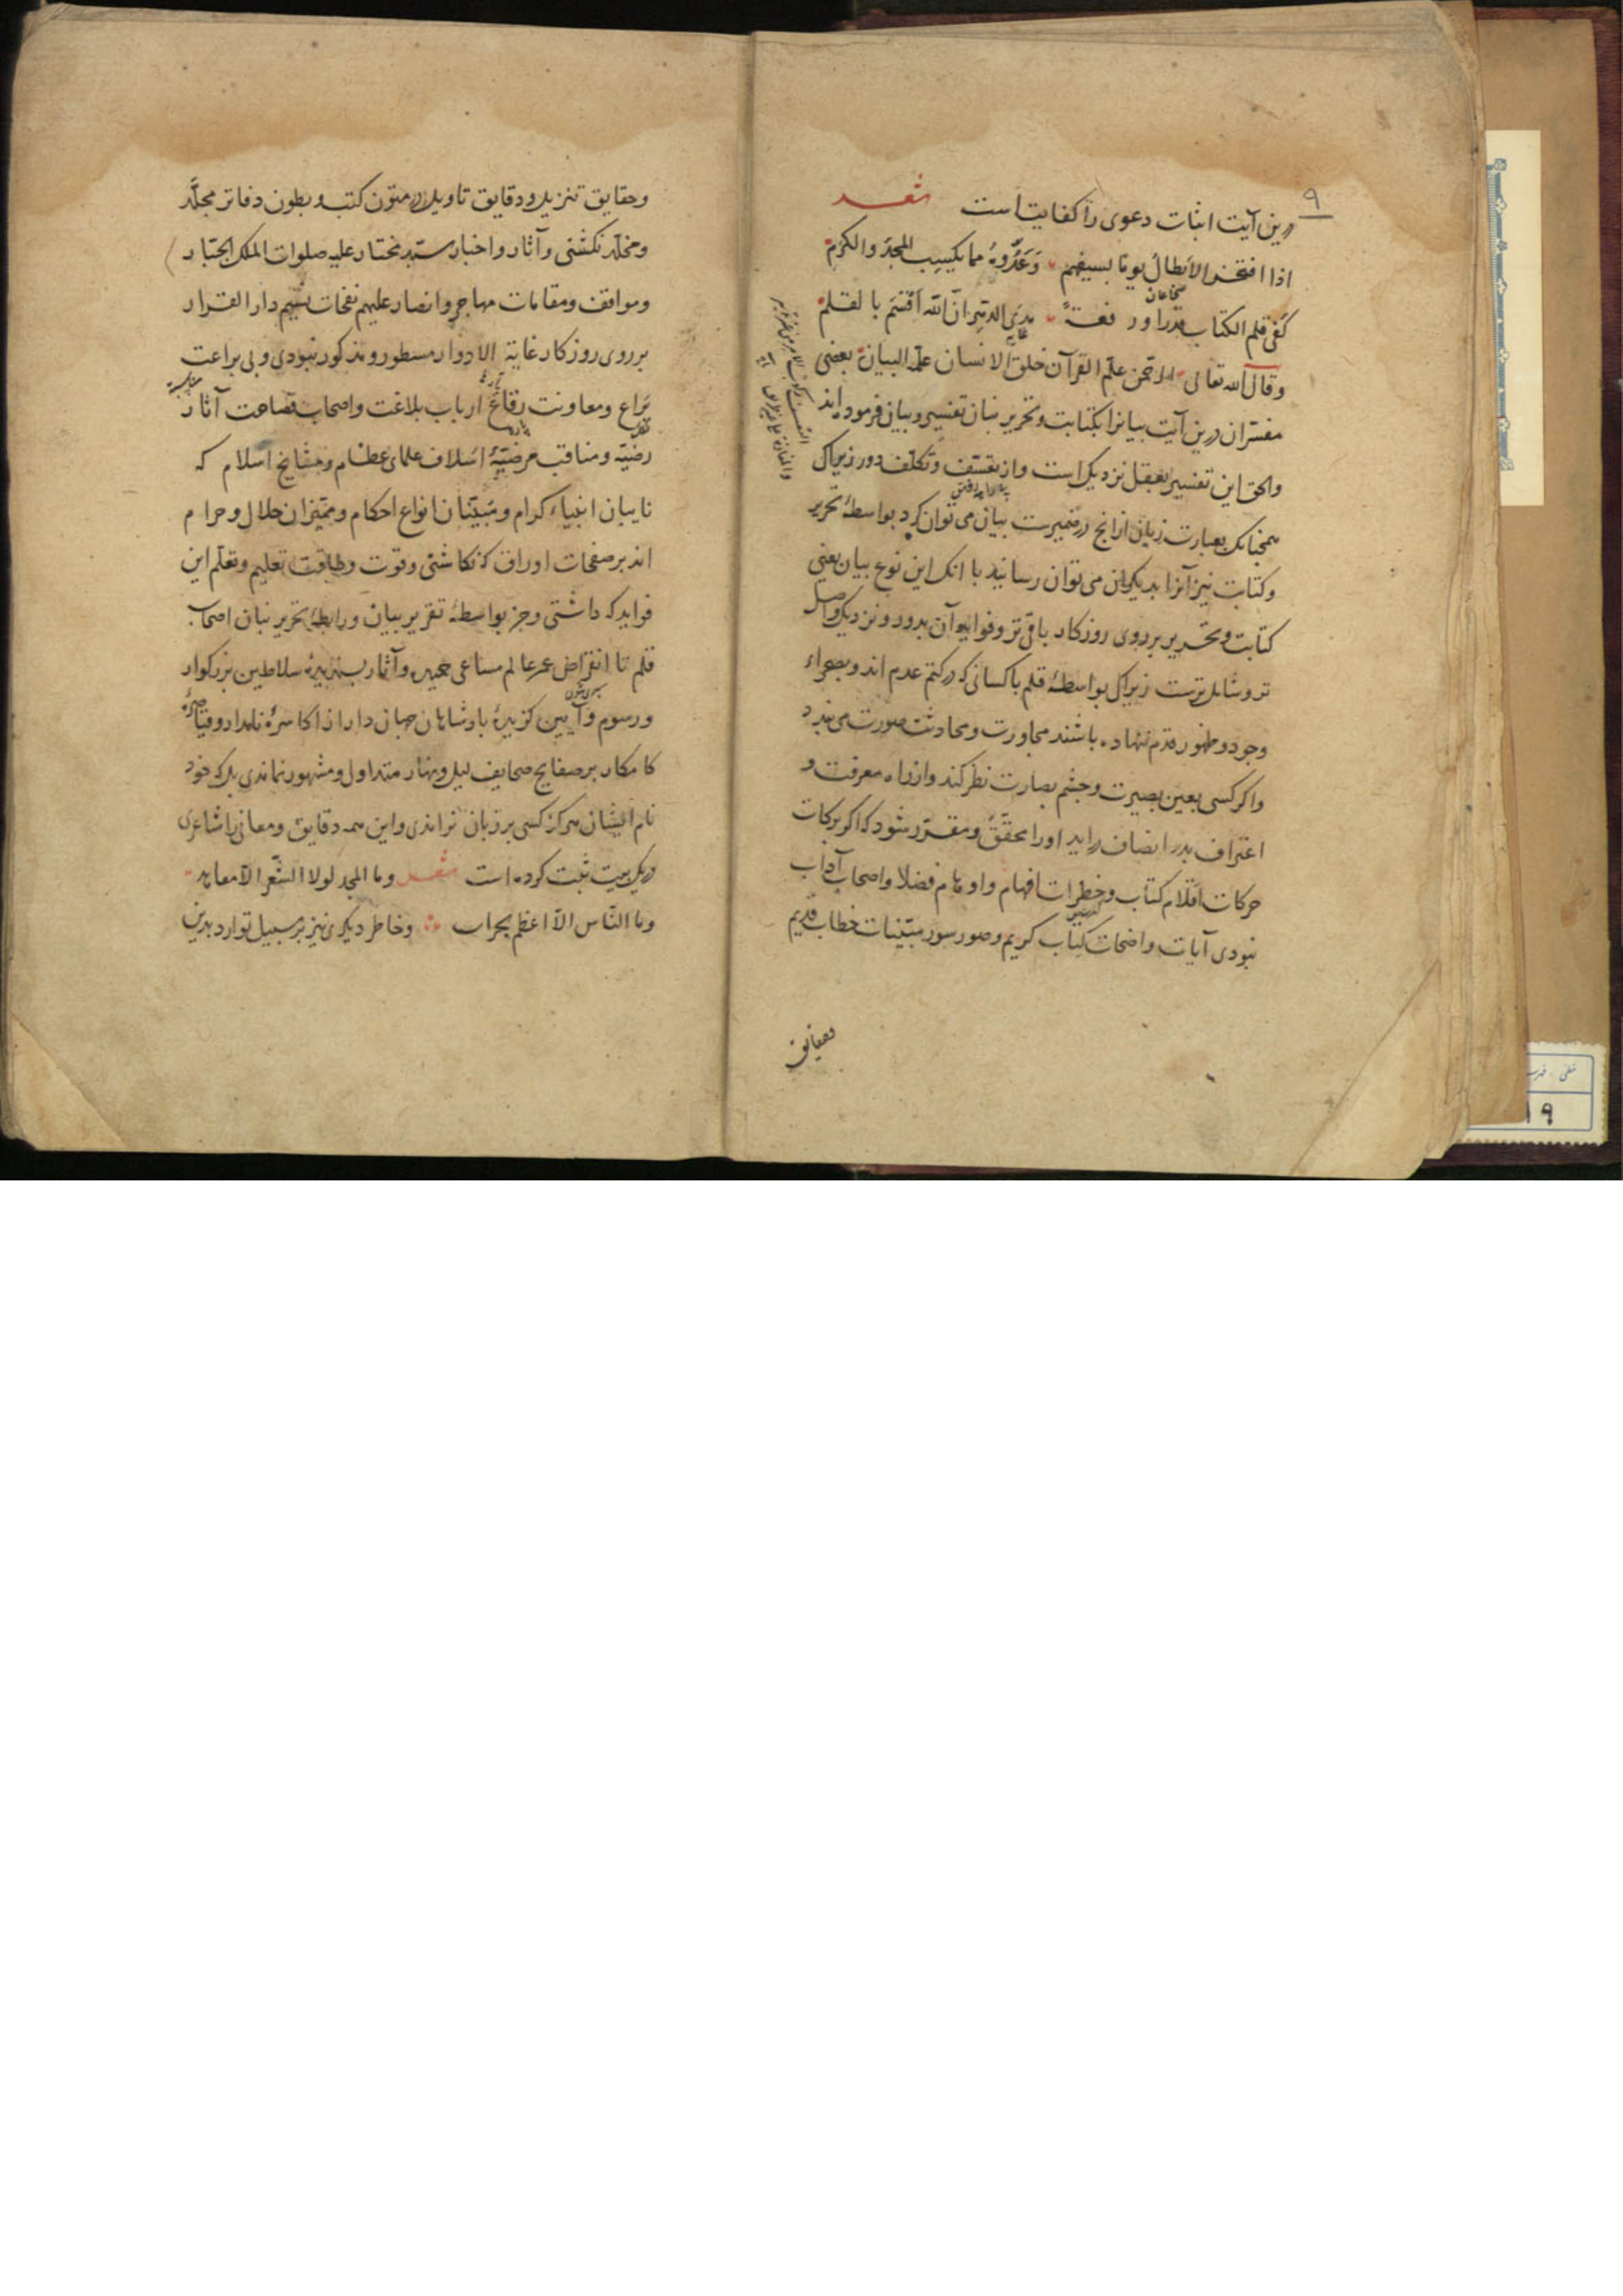 ۹
درین آیت اثبات دعوی را کفایتست شعر
اذا افتخر الابطال یوما بسیفهم وَعَدُّوهُ مما یکسِب المجدَ والکرَم
شجاعان
کفی قلم الکتاب قدرا ورفعةً مدی الدهر ان الله اقسَمَ بالقلم
غایه
وقال الله تعالی الرحمن علّم القرآن خلق الانسان علّمه البیان بعضی
مفسّران درین آیت بیانرا بکتابت و تحریر بنان تفسیر و بیان فرموده اند
والحق این تفسیر بعقل نزدیک است و از تعسّف و تکلّف دور زیراک
بیراه رفتن
همچنانک بعبارت زبان از انچ در ضمیرست بیان می توان کرد بواسطهٔ تحریر
وکتابت نیز آنرا بدیکران می توان رسانید با انک این نوع بیان یعنی
کتابت و تحریر بر روی روزکار باقی تر و فواید آن بدور و نزدیک واصل
تر و شامل ترست زیراک بواسطهٔ قلم با کسانی که در کتم عدم اند و بصحراء
وجود و ظهور قدم ننهاده باشند مجاورت و محادثت صورت می بندد
واکر کسی بعین بصیرت و چشم بصارت نظر کند و از راه معرفت و
اعتراف بدر انصاف در اید اورا محقّق و مقرّر شود که اکر برکات
حرکات اقلام کتاب و خطرات افهام و اوهام فضلا و اصحاب آداب
نبودی آیات واضحات کتاب کریم و صور سور مبیّنات خطاب قدیم
وحقایق تنزیل و دقایق تاویل در متون کتب و بطون دفاتر مجلّد
ومخلّد نکشتی و آثار و اخبار سیّد مختار علیه صلوات الملک الجبّار
ومواقف و مقامات مهاجر و انصار علیهم نفحات نسیم دار القرار
بر روی روزکار غایة الادوار مسطور و مذکور نبودی و بی براعت
یَراع و معاونت رقاع ارباب بلاغت و اصحاب فصاحت آثار
رضیّه و مناقب مرضیّهٔ اسلاف علمای عظام و مشایخ اسلام که
نایبان انبیاء کرام و مبیّنان انواع احکام و ممیّزان حلال و حرام
اند بر صفحات اوراق که نکاشتی و قوت و طاقت تعلیم و تعلّم این
فواید که داشتی و جز بواسطهٔ تقریر بیان و رابطهٔ تحریر بنان اصحاب
قلم تا انقراض عمر عالم مساعی حمیده و آثار پسندیدهٔ سلاطین بزرکوار
ورسوم و آیین کزیدهٔ بادشاهان جهان دار از اکاسرهٔ نامدار و قیاصرهٔ
کامکار بر صفایح صحایف لیل و نهار متداول و مشهور نماندی بلک خود
نام ایشان هرکز کسی بر زبان نراندی و این همه دقایق و معانی را شاعری
در یک بیت ثبت کرده است شعر وما المجد لولا الشعر الا معاهد
وما الناس الّا اعظم نخرات وخاطر دیکری نیز بر سبیل توارد بدین
۱۹